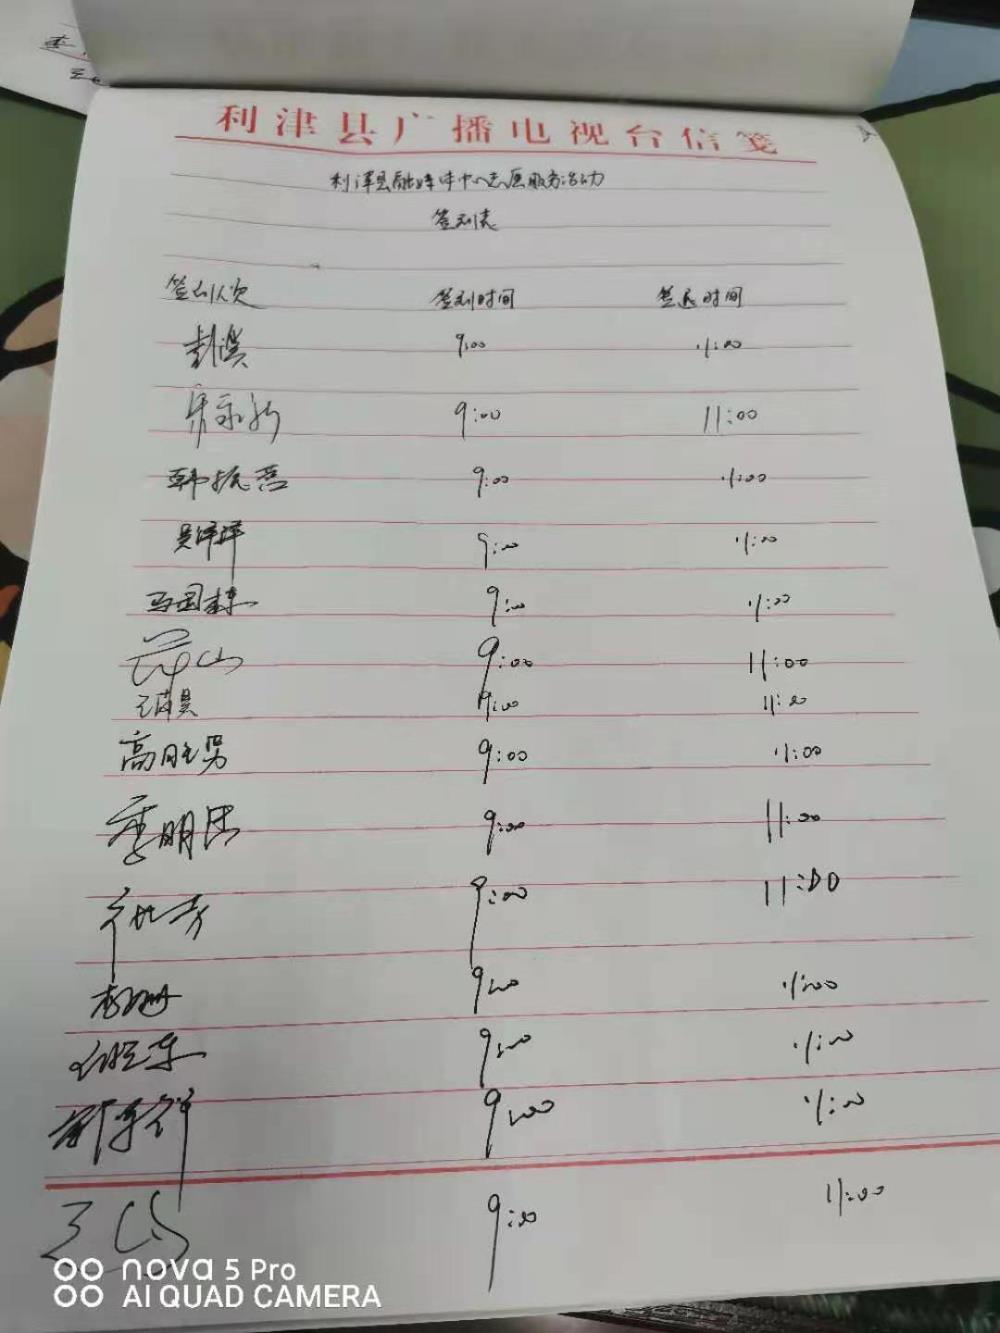 利津县广播电视台信笺
利津县融媒体中心志愿服务活动
签到表
签到人次 签到时间 签退时间
9:00 11:00
9:00 11:00
韩振营 9:00 11:00
吴洋洋 9:00 11:00
马国栋 9:00 11:00
9:00 11:00
9:00 11:00
高胜男 9:00 11:00
李明浩 9:00 11:00
9:00 11:00
李姗 9:00 11:00
9:00 11:00
9:00 11:00
9:00 11:00
nova 5 Pro
AI QUAD CAMERA